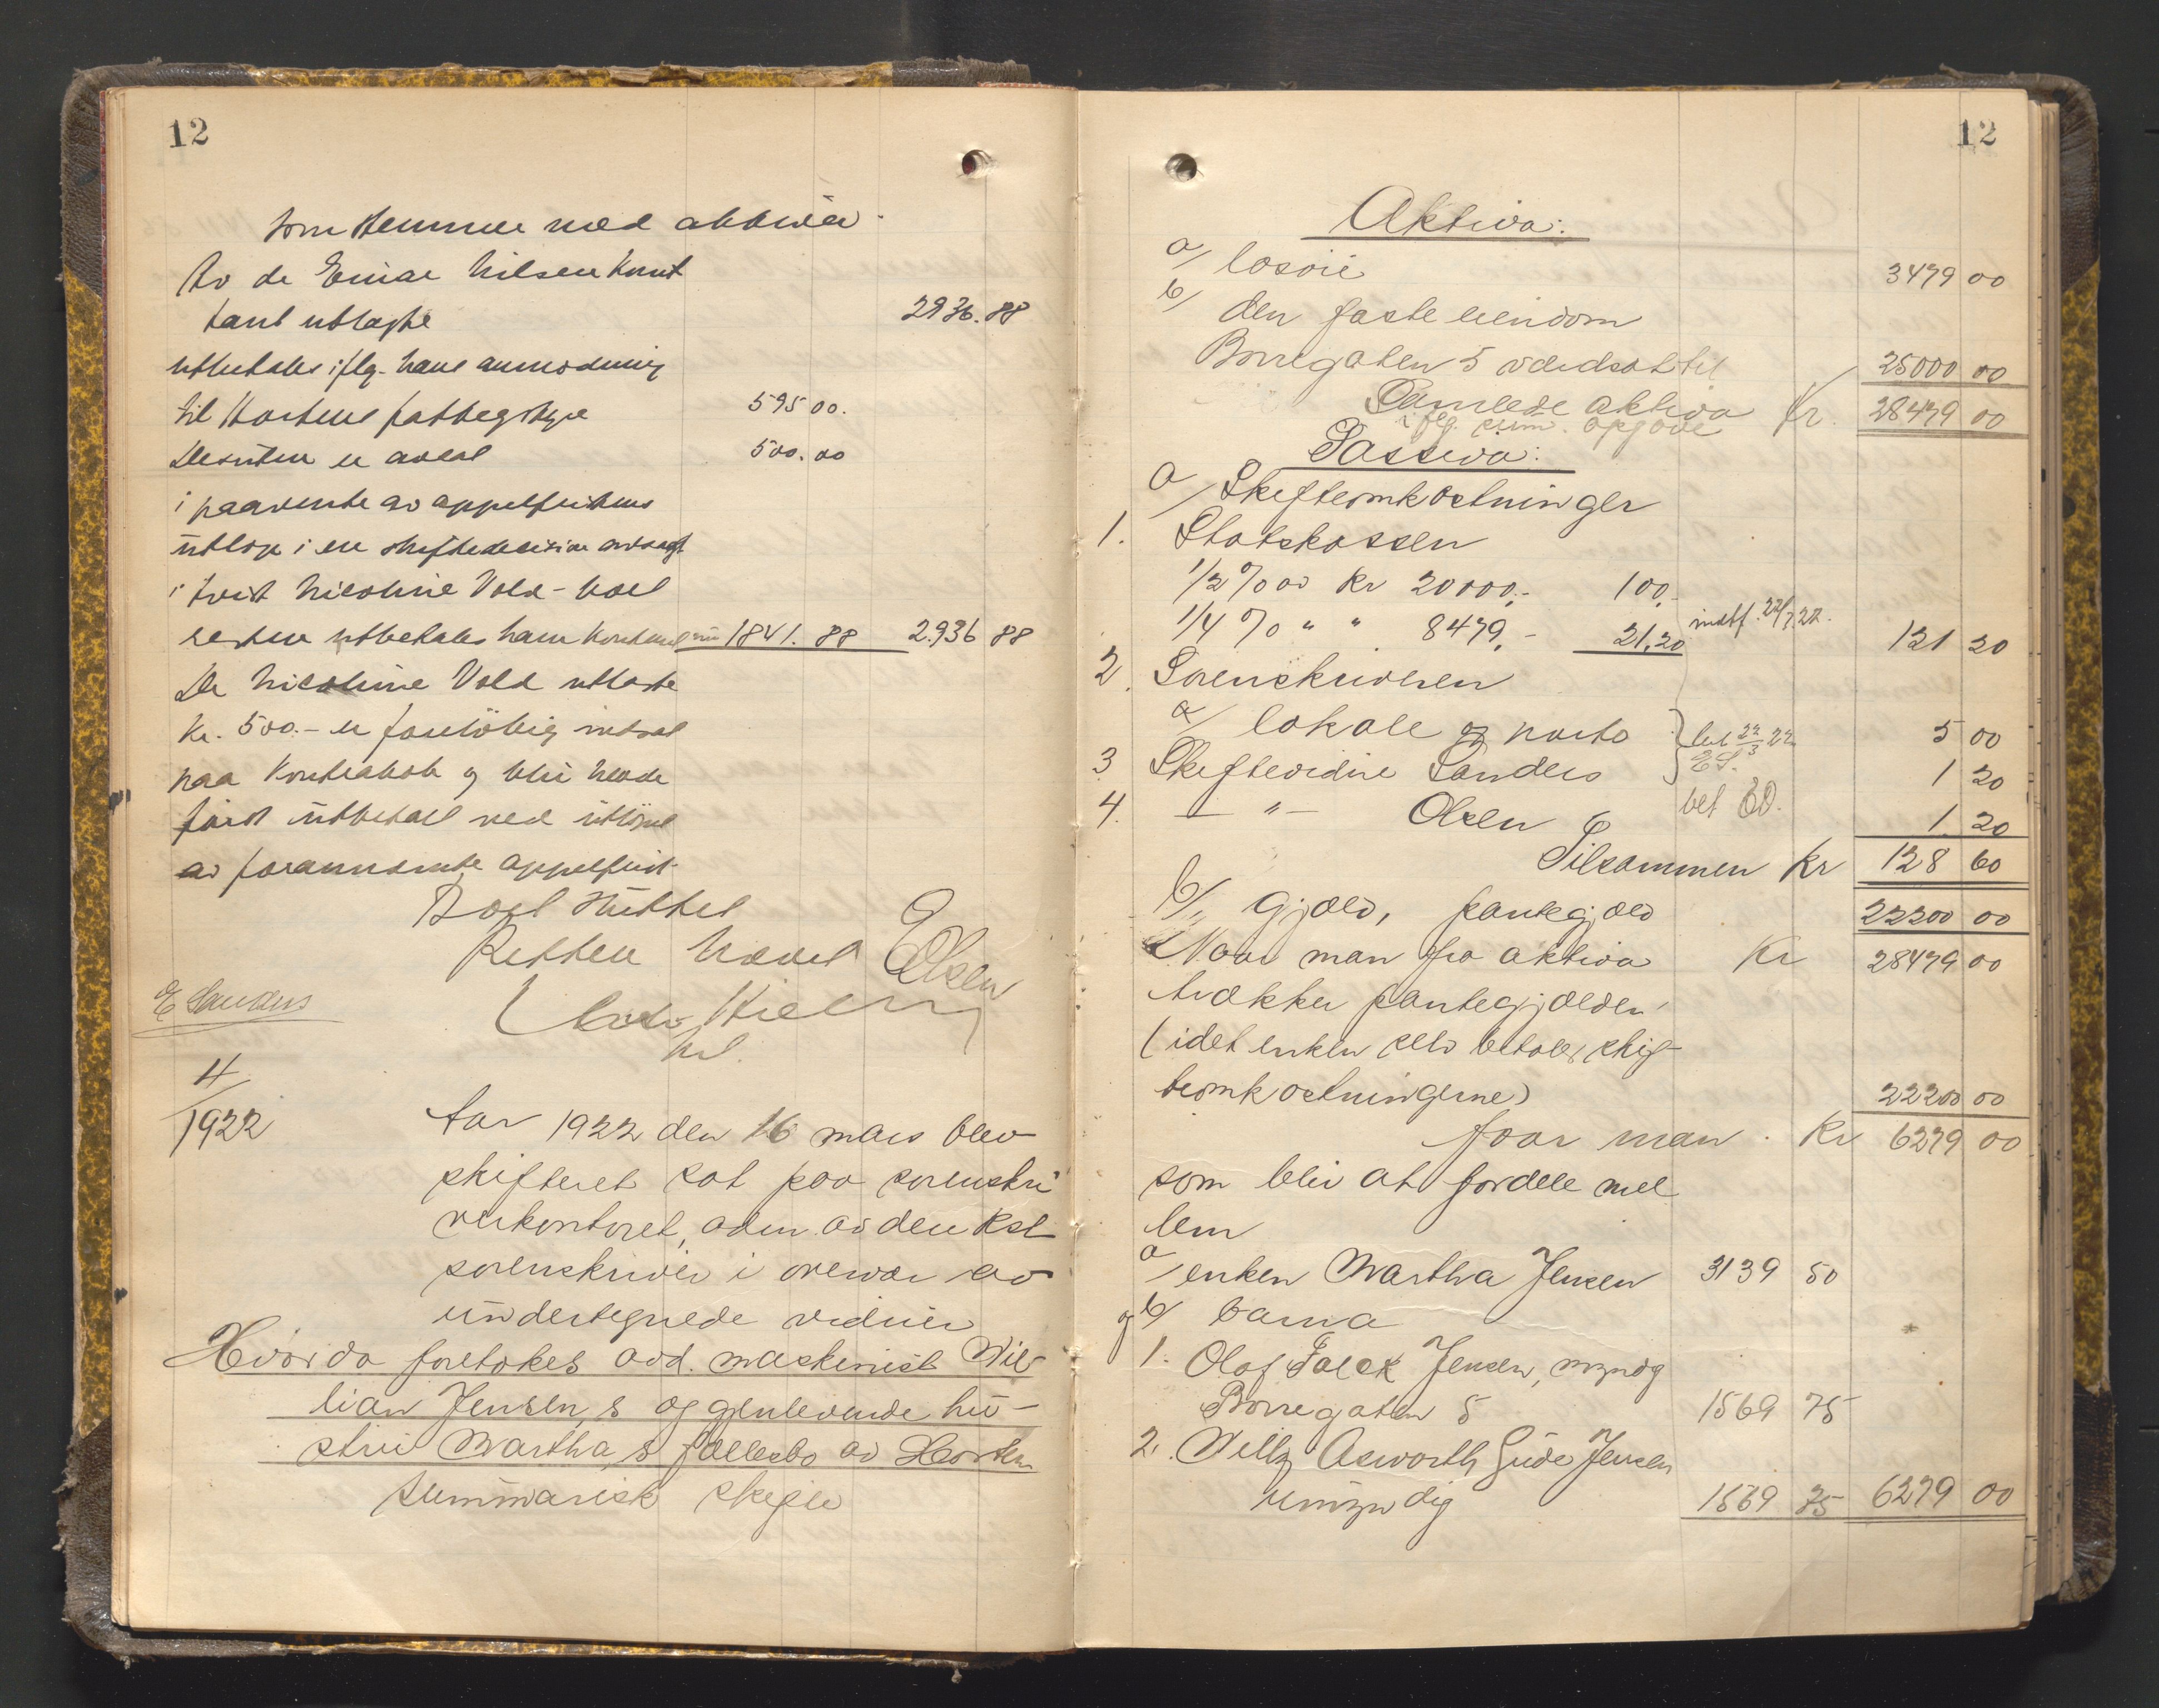 12
som stemmer med aktiva
Av de Einar Nilsen kont
tant utlagte 2936.88
utbetales iflg. hans anmodning
til Hortens fattegstyre 595 00.
Desuten er avsat 500.00
i paavente av appelfristens
utløp i en skiftedecision avsagt
i tvist Nicoline Vold - boet
resten utbetales ham kontant 1841.88 2936 88
De Nicoline Vold utlagte
kr. 500.- er foreløbig indsat
paa kontrabok og blir hende
først utbetalt ved utløpet
av forannævnte appelfrist.
Boet sluttet
Retten hævet
E Olsen
E Sanders
4/1922
Aar 1922 den 16 mars blev
skifteret sat paa sorenskri
verkontoret, adm. av den kst
sorenskriver i overvær av
undertegnede vidner
Hvorda foretokes avd. maskinist Wil-
lian Jensen,s og gjenlevende hu-
stru Martha,s fællesbo av Horten
summarisk skifte
12
Aktiva:
a/ løsøie 3479 00
b/ den faste eiendom
Borregaten 5 værdsat til 25000 00
Samlede aktiva Kr. 28479 00
iflg. sum. opgave
Passiva:
a/ Skifteomkostninger
1. Statskassen
1/2 % av Kr 20000,- 100,-
1/4 % " " 8479,- 21,20 indbf. 22/3 22. 121 20
2. Sorenskriveren
a/ lokale og porto bet 22/3 22 5 00
3 Skiftevidne Sanders ES. 1 20
4. — " — Olsen bet EO. 1 20
Tilsammen Kr 128 60
b/ Gjæld, pantegjæld 22200 00
Naar man fra aktiva Kr 28479 00
trækker pantegjælden
(idet enken selv betaler skif-
teomkostningerne) 22200 00
faar man. Kr 6279 00
som blir at fordele mel
lem
a/ enken Martha Jensen 3139 50
og b/ barna
1. Olaf Falck Jensen, myndig
Borregaten 5 1569 75
2. Willy Asworth Gude Jensen
umyndig 1569 75 6279 00